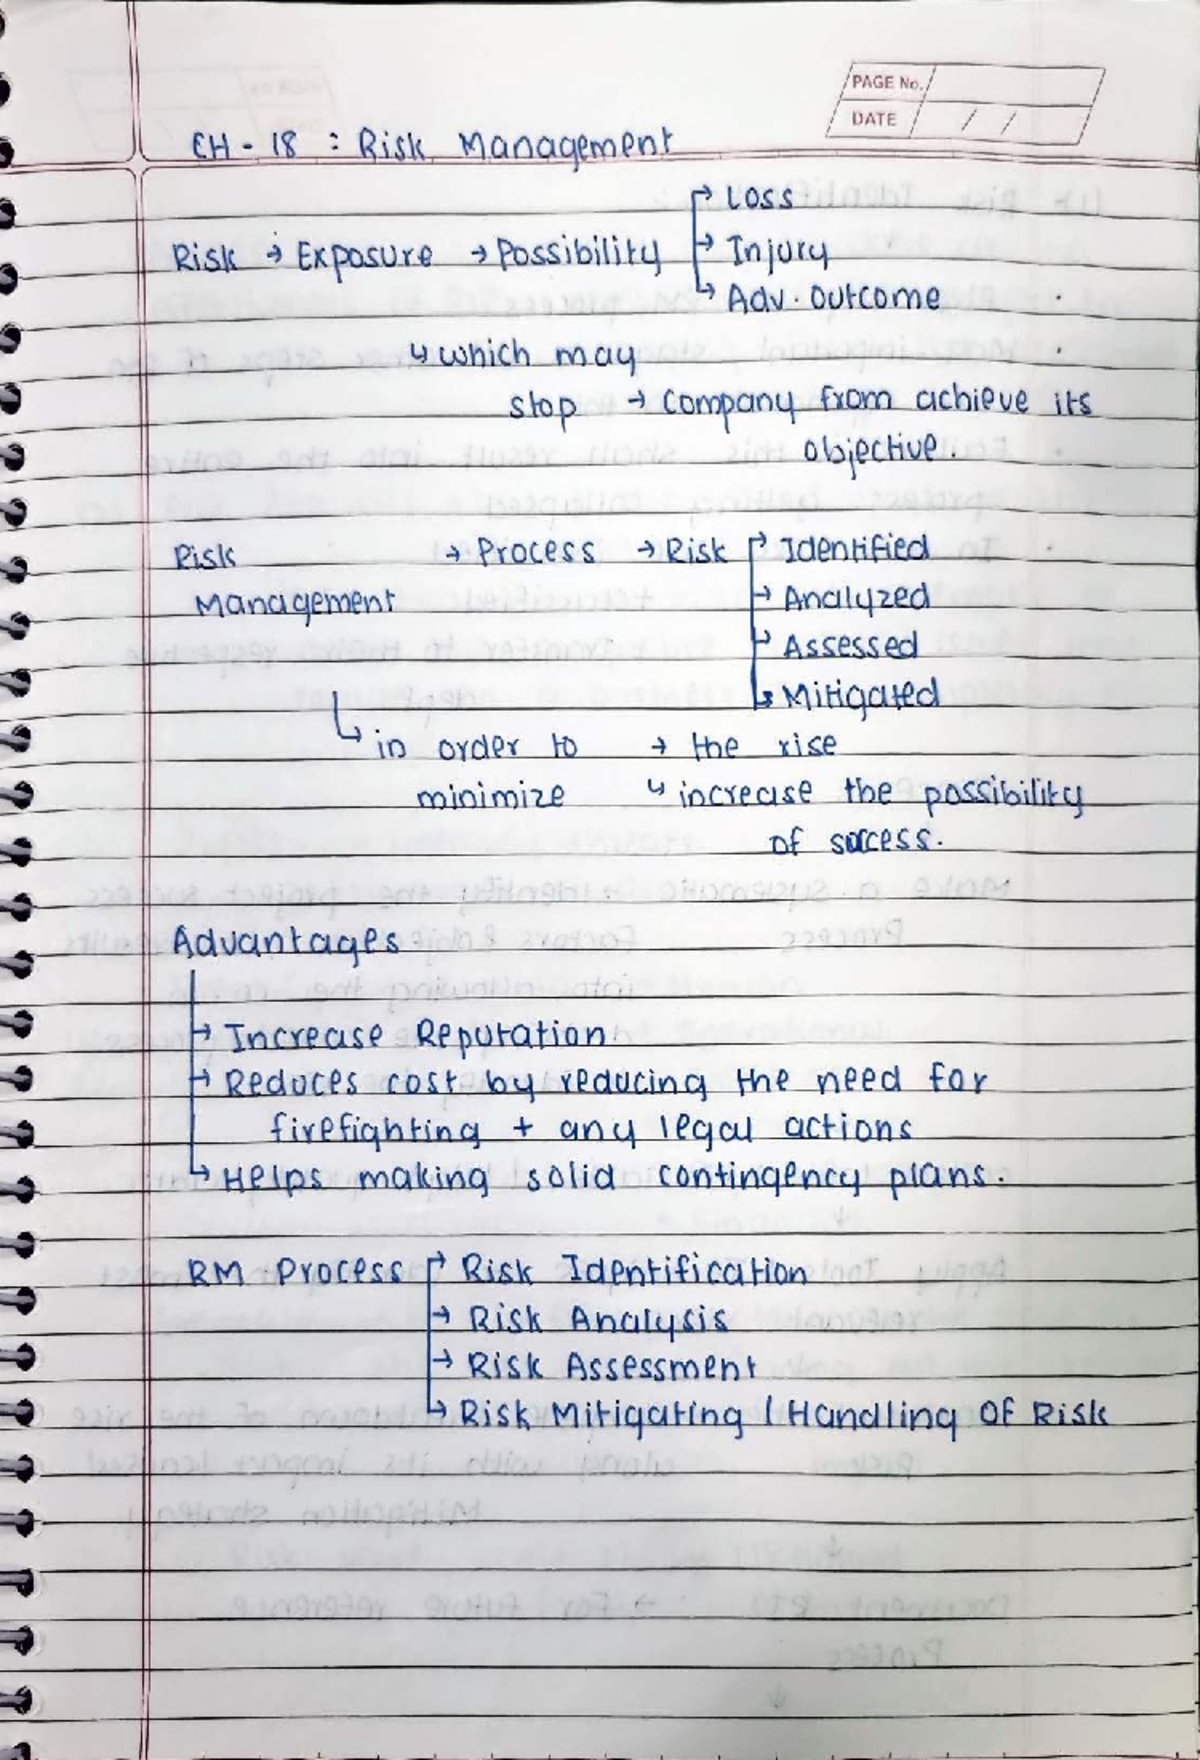 PAGE No.
DATE / /
CH - 18 : Risk Management
→ Loss
Risk → Exposure → Possibility → Injury
→ Adv. Outcome
↳ which may
stop → company from achieve its
objective.
Risk → Process → Risk → Identified
Management → Analyzed
→ Assessed
↳ Mitigated
↳ in order to → the rise
minimize ↳ increase the possibility
of success.
Advantages
→ Increase Reputation
→ Reduces cost by reducing the need for
firefighting + any legal actions
↳ Helps making solid contingency plans.
RM Process → Risk Identification
→ Risk Analysis
→ Risk Assessment
↳ Risk Mitigating / Handling Of Risk